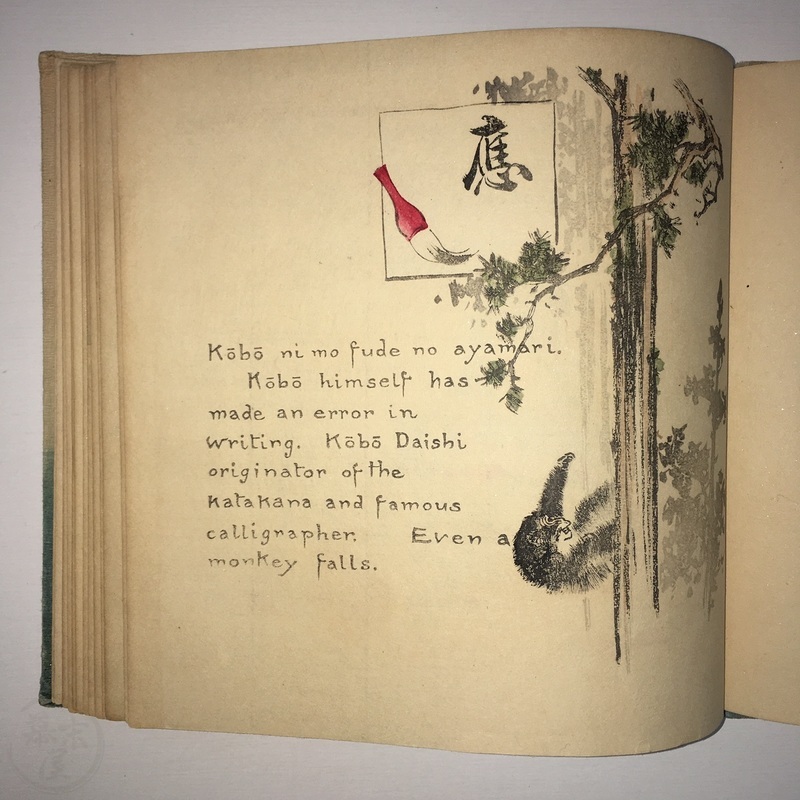 應
Kōbō ni mo fude no ayamari.
Kōbō himself has
made an error in
writing. Kōbō Daishi
originator of the
katakana and famous
calligrapher. Even a
monkey falls.